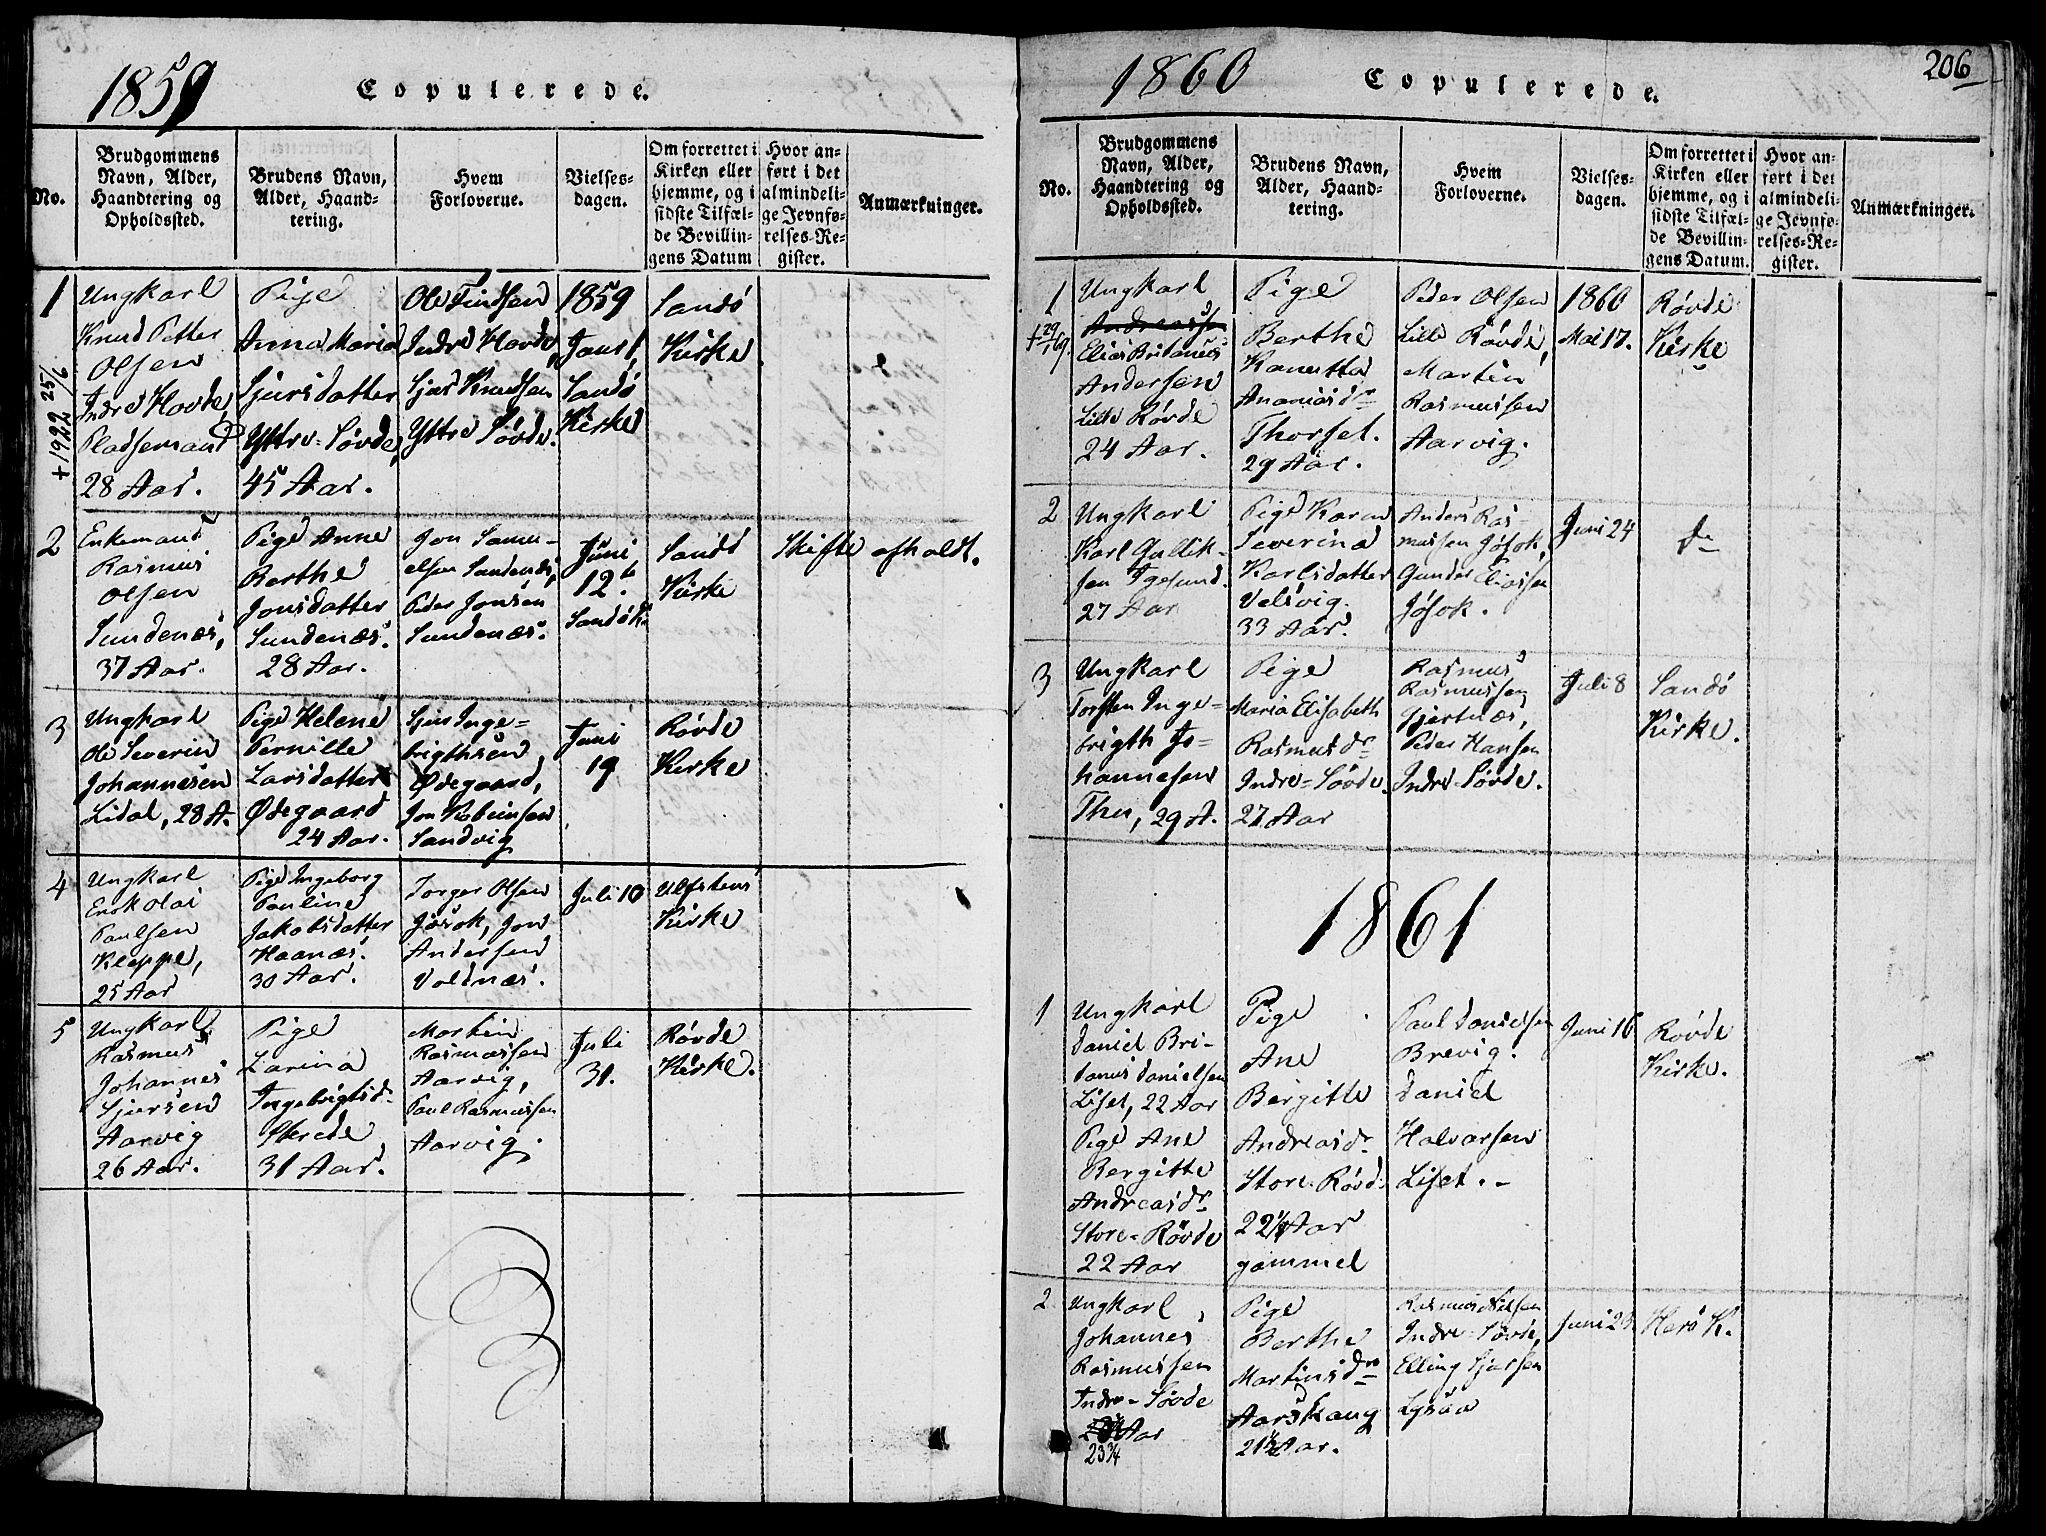 1859
Copulerede.
No.
Brudgommens
Navn, Alder,
Haandtering og
Opholdssted.
Brudens Navn,
Alder, Haand-
tering.
Hvem
Forloverne.
Vielses-
dagen.
Om forrettet i
Kirken eller
hjemme, og i
sidste Tilfæl-
de Bevillin-
gens Datum
Hvor an-
ført i det
almindeli-
ge Jevnfø-
relses-Re-
gister.
Anmærkninger.
1
+ 1922 25/6
Ungkarl
Knud Petter
Olsen
Indre Hovde,
Pladsemand
28 Aar.
Pige
Anna Maria
Sjursdatter
Yttre-Søvde,
45 Aar.
Ole Findsen
Indre Hovde,
Sjur Knudsen
Yttre Søvde.
1859
Janr 1,
Sandø
Kirke
Sandø
Kirke
2
Enkemand
Rasmus
Olsen
Sundenæs,
37 Aar.
Pige Anne
Berthe
Jonsdatter
Sundenæs.
28 Aar.
Jon Samu-
elsen Sundenæs,
Peder Jonsen
Sundenæs.
Juni
12te
Sandø K.
Sandø
Kirke
Skifte afholdt.
3
Ungkarl
Ole Severin
Johannesen
Lidal, 28 A.
Pige Helene
Pernille
Larsdatter
Ødegaard
24 Aar.
Sjur Inge-
brigthsen
Ødegaard,
Jon
Sandvig
Juni
19
Røvde
Kirke
4
Ungkarl
Paulsen
Kleppe,
25 Aar
Pige Ingeborg
Pauline
Jakobsdatter
Haanæs.
30 Aar.
Torger Olsen
Jøsok, Jon
Andersen
Voldnæs.
Juli 10
Ulfstens
Kirke
5
Ungkarl
Rasmus
Johannes
Sjursen
Aarvig
26 Aar.
Pige
Larina
Ingebrigtsdr
Sterede
31 Aar.
Martin
Rasmussen
Aarvig,
Paul Rasmussen
Aarvig.
Juli
31.
Røvde
Kirke.
206
1860
Copulerede.
No.
Brudgommens
Navn, Alder,
Haandtering og
Opholdssted.
Brudens Navn,
Alder, Haand-
tering.
Hvem
Forloverne.
Vielses-
dagen.
Om forrettet i
Kirken eller
hjemme, og i
sidste Tilfæl-
de Bevillin-
gens Datum.
Hvor an-
ført i det
almindeli-
ge Jevnfø-
relses-Re-
gister.
Anmærkninger.
1
Ungkarl
Elias Britanus
Andersen
Lille Røvde
24 Aar.
Pige
Berthe
Kanutta
Ananiasdr
Thorset.
29 Aar.
Peder Olsen
Lille Røvde,
Martin
Rasmussen
Aarvig.
1860
Mai 17.
Røvde
Kirke
2
Ungkarl
Karl Gullik-
sen Igesund.
27 Aar
Pige Karen
Severina
Karlsdatter
Velsvig.
33 Aar.
Anders Ras-
mussen Jøsok,
Gunder Eliassen
Jøsok.
Juni 24
do
3
Ungkarl
Torsten Inge-
brigth Jo-
hannesen
Thu, 29 A.
Pige
Maria Elisabeth
Rasmusdr
Indre-Søvde.
27 Aar
Rasmus
Rasmussen
Gjertnæs,
Peder Hansen
Indre-Søvde.
Juli 8
Sandø
Kirke.
1861
1
Ungkarl
Daniel Bri-
tanus Danielsen
Liset, 22 Aar
Pige Ane
Bergitte
Andreasdr
Store-Røvde
22 Aar
Pige
Ane
Bergitte
Andreasdr
Store-Røvd
22 1/4 Aar
gammel
Paul Danielsen
Brevig.
Daniel
Halvorsen
Liset.-
Juni 16
Røvde
Kirke.
2
Ungkarl
Johannes
Rasmussen
Indre-Søvde
Aar
23 3/4
Pige
Berthe
Martinsdr
Aarskaug
21 1/2 Aar.
Rasmus Nilsen
Indre-Søvde,
Elling Sjursen
Juni 23
Herø K.